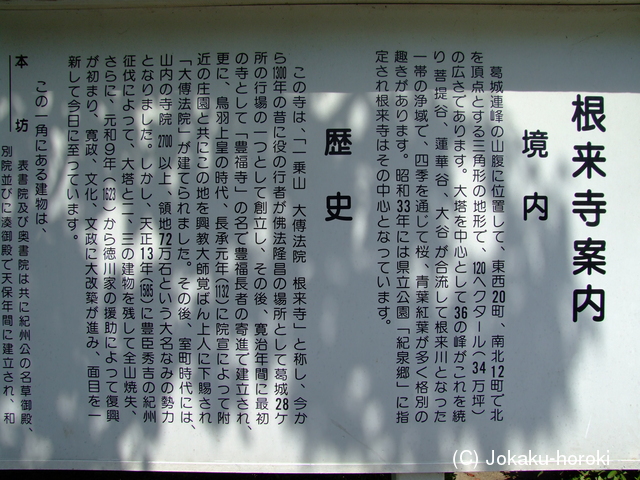 根来寺案内
境内
葛城連峰の山腹に位置して、東西20町、南北12町で北
を頂点とする三角形の地形で、120ヘクタール(34万坪)
の広さであります。大塔を中心として36の峰がこれを続
り菩提谷、蓮華谷、大谷が合流して根来川となった
一帯の浄域で、四季を通じて桜、青葉紅葉が多く格別の
趣きがあります。昭和33年には県立公園「紀泉郷」に指
定され根来寺はその中心となっています。
歴史
この寺は、「一乗山 大傳法院 根来寺」と称し、今か
ら1300年の昔に役の行者が佛法隆昌の場所として葛城28ケ
所の行場の一つとして創立し、その後、寛治年間に最初
の寺として「豊福寺」の名で豊福長者の寄進で建立され、
更に、鳥羽上皇の時代、長承元年(1132)に院宣によって附
近の庄園と共にこの地を興教大師覚ばん上人に下賜され
「大傳法院」が建てられました。その後、室町時代には、
山内の寺院2700以上、領地72万石という大名なみの勢力
となりました。しかし、天正13年(1585)に豊臣秀吉の紀州
征伐によって、大塔と二、三の建物を残して全山焼失、
さらに、元和9年(1623)から徳川家の援助によって復興
が初まり、寛政、文化、文政に大改築が進み、面目を一
新して今日に至っています。
この一角にある建物は、
本坊 表書院及び奥書院は共に紀州公の名草御殿、
別院並びに湊御殿で天保年間に建立され、和
(C) Jokaku-horoki